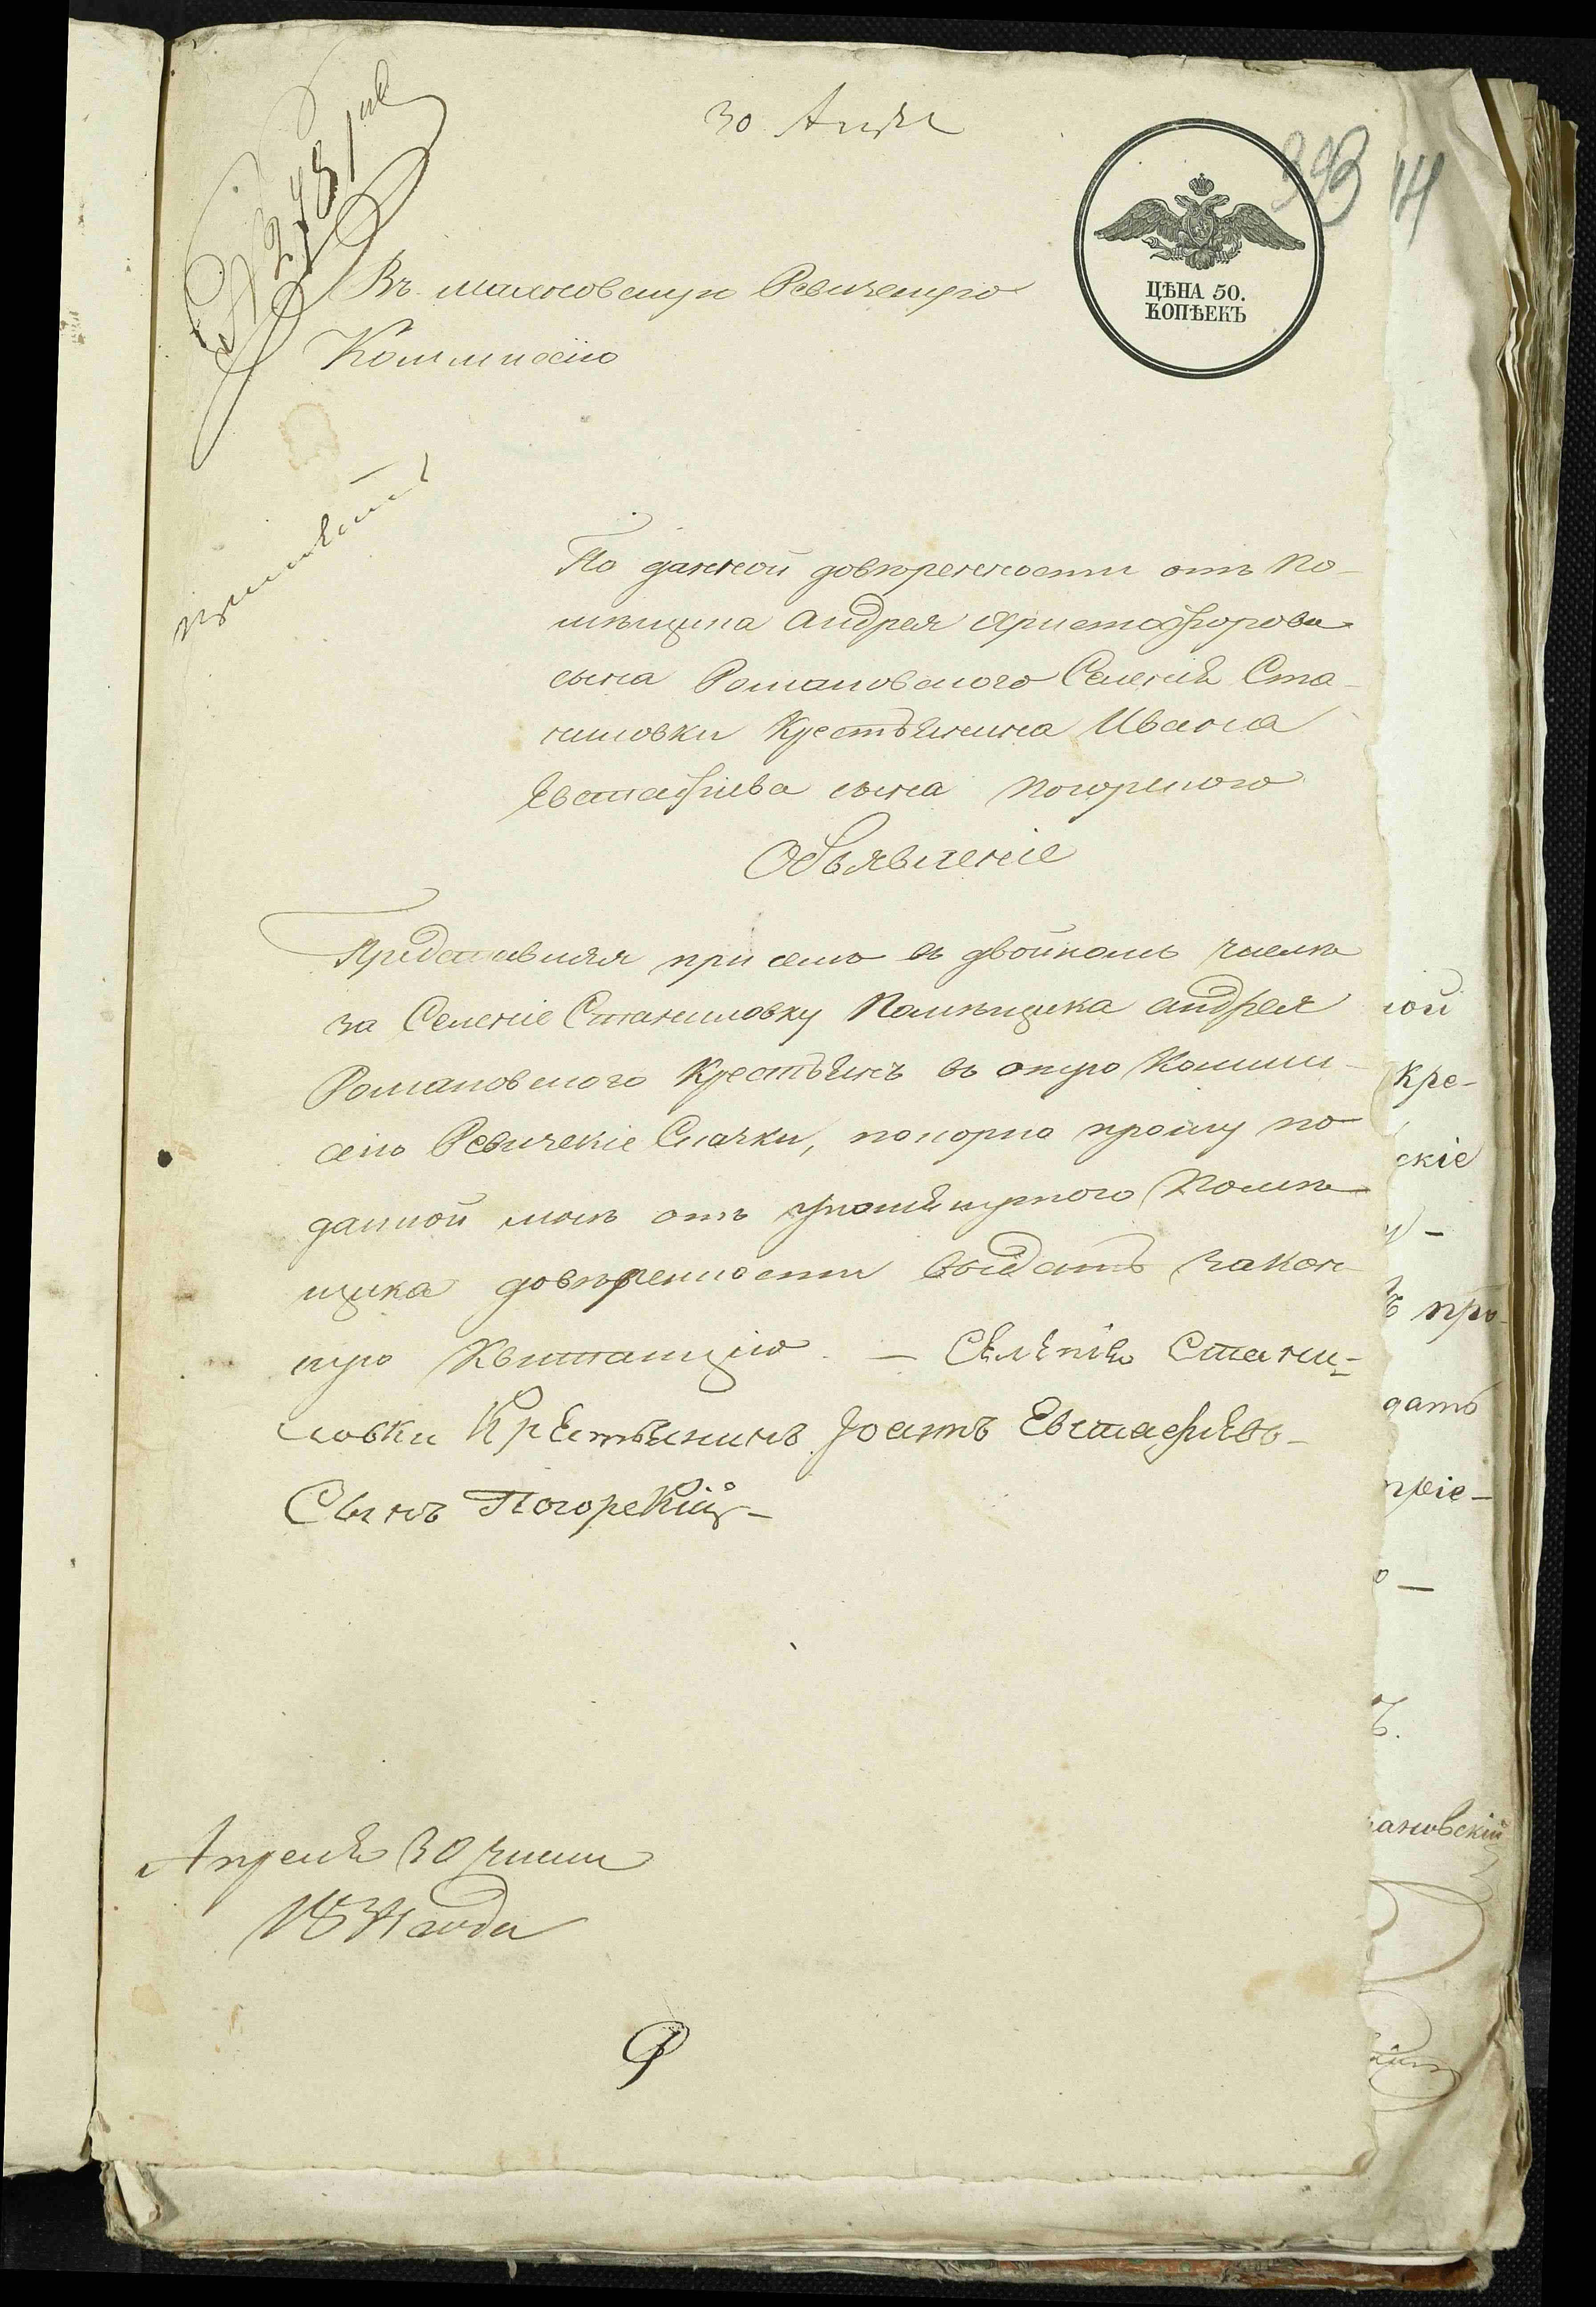 30 Апрѣля
393
14
№ 2781
ЦѢНА 50.
КОПѢЕКЪ
Въ Махновскую Ревизскую
Коммисію
По данной довѣренности отъ По-
мѣщика Андрея Христофорова
сына Романовского Селенія Ста-
ниловки Крестьянина Ивана
Евстафіева сына Погорѣлого
Объявленіе
Представляя при семъ въ двойномъ числѣ
за Селеніе Станиловку Помѣщика Андрея
Романовского Крестьянъ въ оную Комми-
сію Ревизскіе Скачки, покорно прошу по
данной мнѣ отъ упомянутого Помѣ
щика довѣренности выдать закон-
ную Квитанцію. — Селѣнія Стани-
ловки Крѣстьянинъ Іоанъ Евстафіевъ
Сынъ Погорекій
Апреля 30 дня
185
ной
Кре-
скіе
ъ про
дать
ановскій